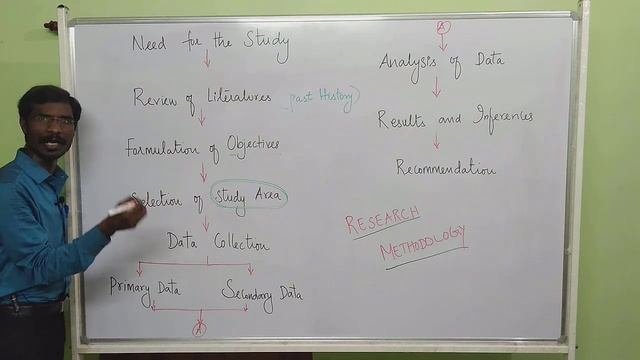 Need for the Study
Review of Literatures (past History)
Formulation of Objectives
Selection of Study Area
Data Collection
Primary Data Secondary Data
A
A
Analysis of Data
Results and Inferences
Recommendation
RESEARCH
METHODOLOGY